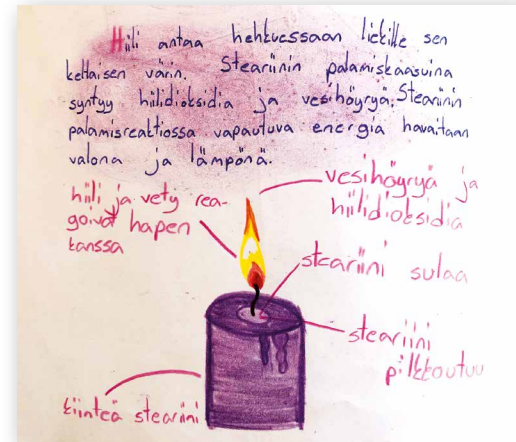 Hiili antaa hehkuessaan liekille sen
keltaisen värin. Steariinin palamiskaasuina
syntyy hiilidioksidia ja vesihöyryä. Steariinin
palamisreaktiossa vapautuva energia havaitaan
valona ja lämpönä.
vesihöyryä ja
hiilidioksidia
hiili ja vety rea-
goivat hapen
kanssa
steariini sulaa
steariini
pilkkoutuu
kiinteä steariini